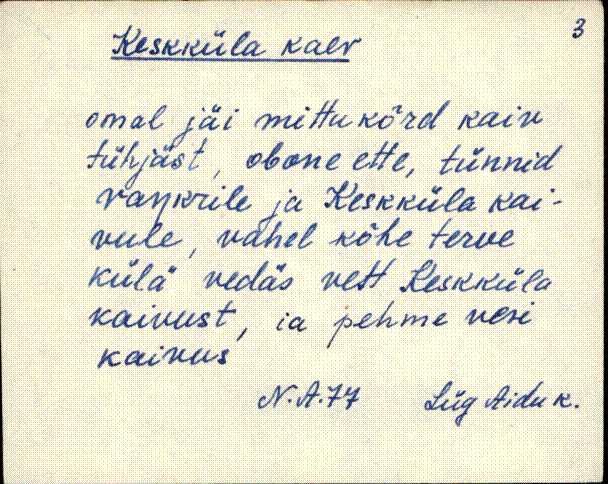 3
Keskküla kaev
omal jäi mittu kõrd kaiv
tühjäst, obone ette, tünnid
vaŋkrile ja Keskküla kai-
vule, vahel kõhe terve
külä vedäs vett Keskküla
kaivust, ia pehme vesi
kaivus
N.A.77 Lüg Aidu k.